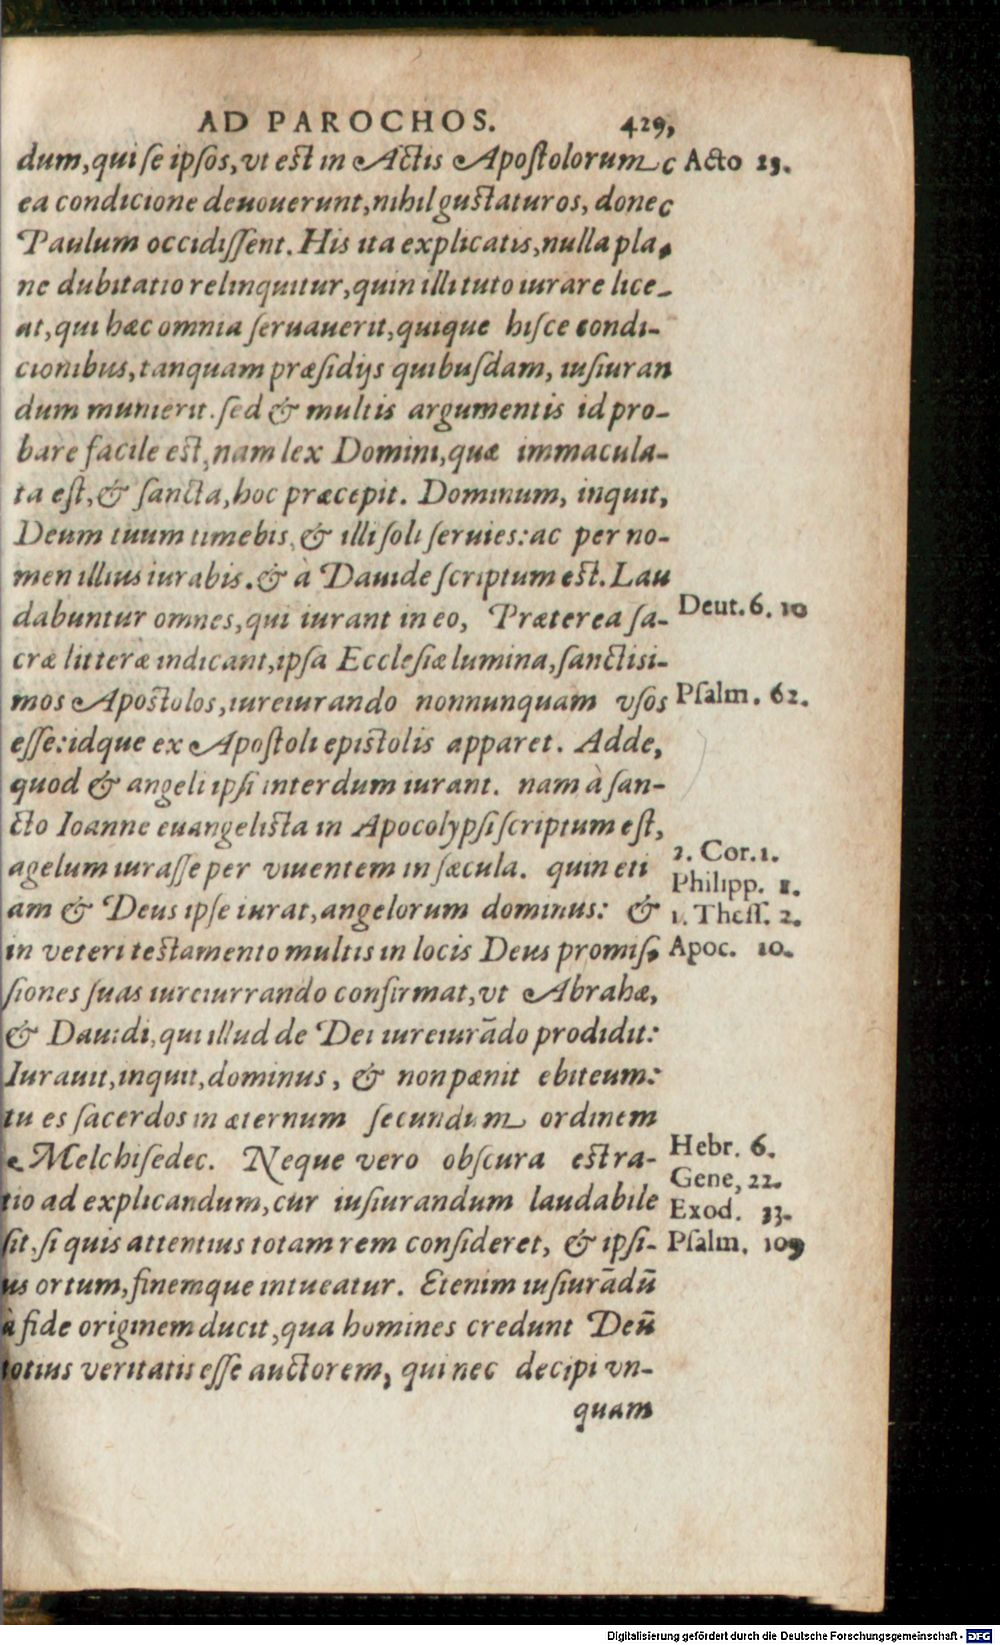 AD PAROCHOS. 429,
dum, qui se ipsos, vt est in Actis Apostolorum c Acto 23.
ea condicione deuouerunt, nihil gustaturos, donec
Paulum occidissent. His ita explicatis, nulla pla-
ne dubitatio relinquitur, quin illi tuto iurare lice-
at, qui hæc omnia seruauerit, quique hisce condi-
cionibus, tanquam præsidijs quibusdam, iusiuran
dum munierit. sed & multis argumentis id pro-
bare facile est, nam lex Domini, quæ immacula-
ta est, & sancta, hoc præcepit. Dominum, inquit,
Deum tuum timebis, & illi soli seruies: ac per no-
men illius iurabis. & à Dauide scriptum est. Lau
dabuntur omnes, qui iurant in eo, Præterea sa- Deut. 6. 10
cræ litteræ indicant, ipsa Ecclesiæ lumina, sanctisi-
mos Apostolos, iureiurando nonnunquam vsos Psalm. 62.
esse: idque ex Apostoli epistolis apparet. Adde,
quod & angeli ipsi interdum iurant. nam à san-
cto Ioanne euangelista in Apocolypsi scriptum est,
agelum iurasse per viuentem in sæcula. quin eti 2. Cor. 1.
Philipp. 1.
am & Deus ipse iurat, angelorum dominus: & 1. Thess. 2.
in veteri testamento multis in locis Deus promis- Apoc. 10.
siones suas iureiurrando confirmat, vt Abrahæ,
& Dauidi, qui illud de Dei iureiurādo prodidit:
Iurauit, inquit, dominus, & non pænit ebit eum:
tu es sacerdos in æternum secundum ordinem
Melchisedec. Neque vero obscura est ra- Hebr. 6.
Gene, 22.
tio ad explicandum, cur iusiurandum laudabile Exod. 33.
sit, si quis attentius totam rem consideret, & ipsi- Psalm. 109
us ortum, finemque intueatur. Etenim iusiurādū
à fide originem ducit, qua homines credunt Deū
totius veritatis esse auctorem, qui nec decipi vn-
quam
Digitalisierung gefördert durch die Deutsche Forschungsgemeinschaft - DFG